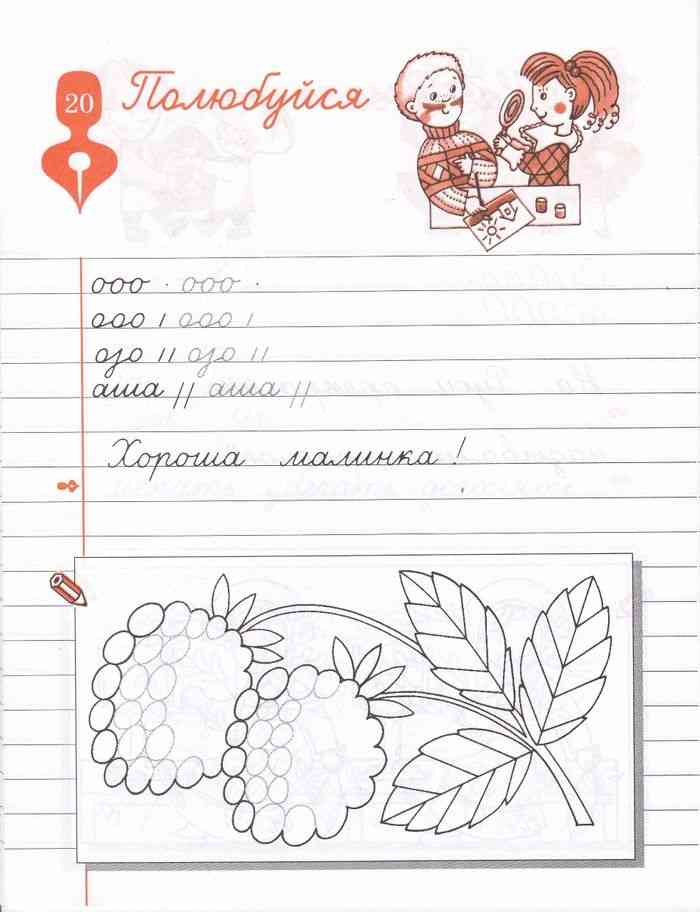 20
Полюбуйся
ооо · ооо ·
ооо / ооо /
озо // озо //
аша // аша //
Хороша малинка!